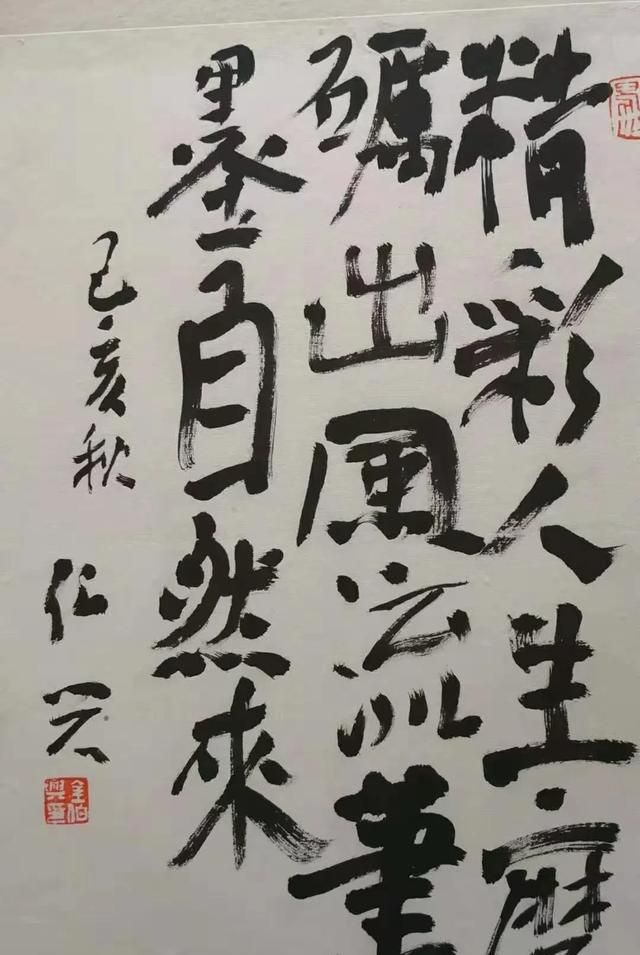 精彩人生磨
礪出風流筆
墨自然來
己亥秋
金伯
興